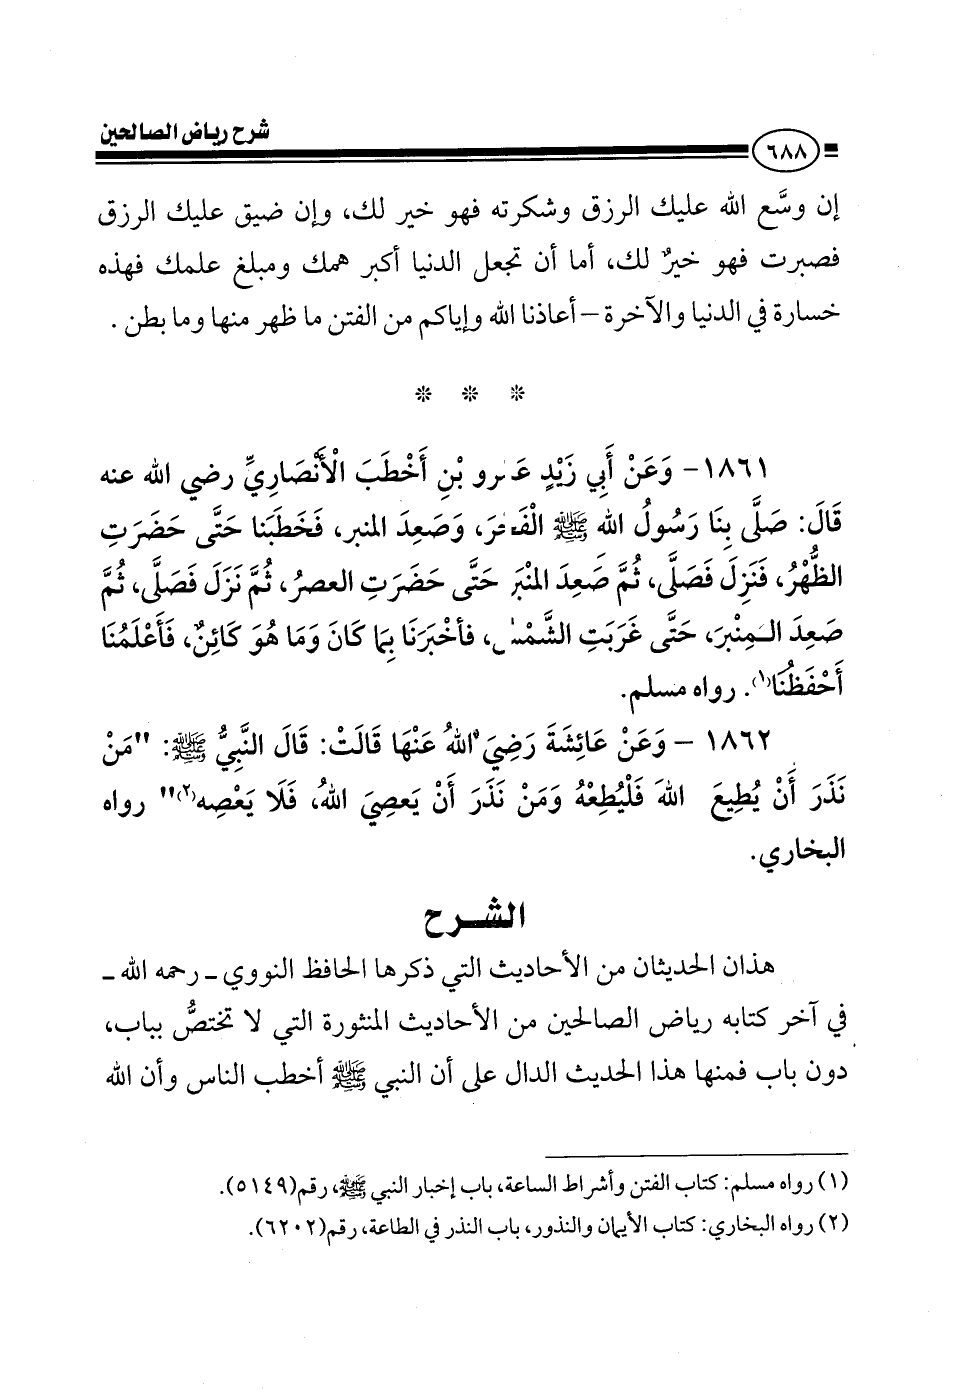 شرح رياض الصالحين
٦٨٨
إن وسَّع الله عليك الرزق وشكرته فهو خير لك، وإن ضيق عليك الرزق
فصبرت فهو خيرٌ لك، أما أن تجعل الدنيا أكبر همك ومبلغ علمك فهذه
خسارة في الدنيا والآخرة – أعاذنا الله وإياكم من الفتن ما ظهر منها وما بطن .
* * *
١٨٦١- وَعَنْ أَبِي زَيْدٍ عَمْرو بْنِ أَخْطَبَ الْأَنْصَارِيِّ رضي الله عنه
قَالَ: صَلَّى بِنَا رَسُولُ الله ﷺ الْفَجْرَ، وَصَعِدَ المنبر، فَخَطَبَنا حَتَّى حَضَرَتِ
الظُّهْرُ، فَنَزِلَ فَصَلَّى، ثُمَّ صَعِدَ المْنْبَر حَتَّى حَضَرَتِ العصرُ، ثُمَّ نَزَلَ فَصَلَّى، ثُمَّ
صَعِدَ الـمِنْبرَ، حَتَّى غَرَبَتِ الشَّمْسُ، فأخْبَرَنَا بِمَا كَانَ وَمَا هُوَ كَائِنٌ، فَأَعْلَمُنَا
أَحْفَظُنَا(١). رواه مسلم.
١٨٦٢ - وَعَنْ عَائِشَةَ رَضِيَ اللهُ عَنْهَا قَالَتْ: قَالَ النَّبِيُّ ﷺ: "مَنْ
نَذَرَ أَنْ يُطِيعَ اللهَ فَلْيُطِعْهُ وَمَنْ نَذَرَ أَنْ يَعصِيَ اللهُ، فَلَا يَعْصِه(٢)" رواه
البخاري.
الشـرح
هذان الحديثان من الأحاديث التي ذكرها الحافظ النووي ـ رحمه الله ـ
في آخر كتابه رياض الصالحين من الأحاديث المنثورة التي لا تختصُّ بباب،
دون باب فمنها هذا الحديث الدال على أن النبي ﷺ أخطب الناس وأن الله
(١) رواه مسلم: كتاب الفتن وأشراط الساعة، باب إخبار النبي ﷺ، رقم(٥١٤٩).
(٢) رواه البخاري: كتاب الأيمان والنذور، باب النذر في الطاعة، رقم(٦٢٠٢).